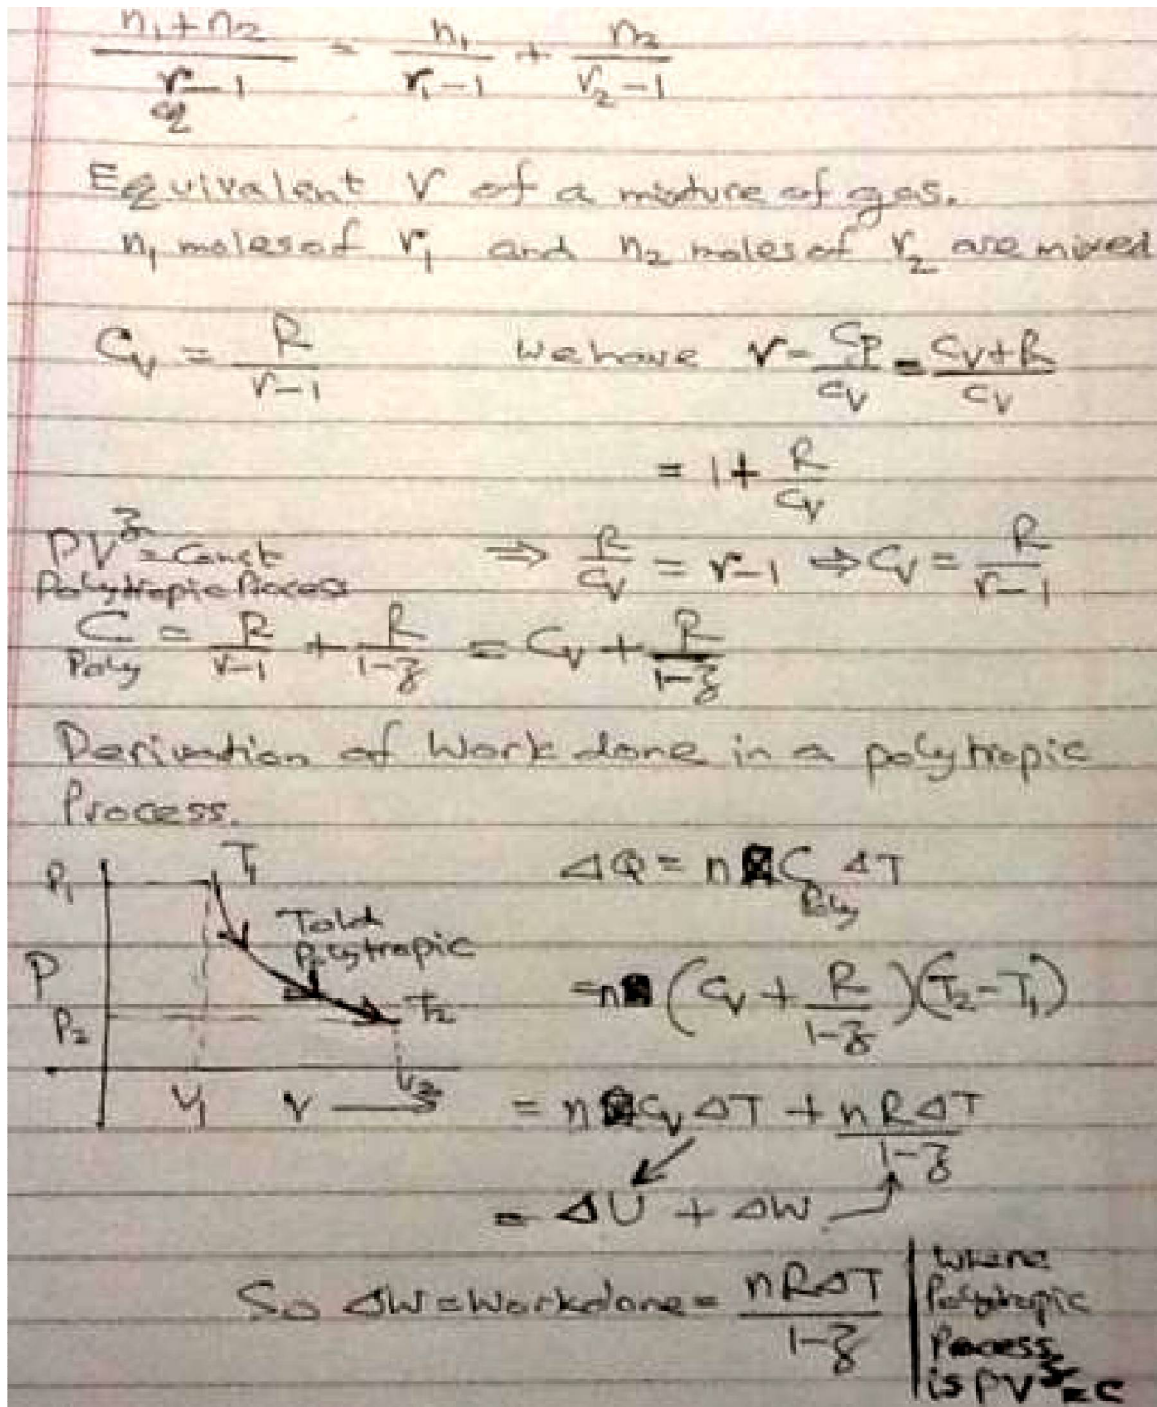 n₁+n₂ / r_eq - 1 = n₁ / r₁-1 + n₂ / r₂-1
Equivalent r of a mixture of gas.
n₁ moles of r₁ and n₂ moles of r₂ are mixed
Cv = R / r-1 We have r = Cp / Cv = Cv+R / Cv
= 1 + R / Cv
PV^z = Const ⇒ R / Cv = r-1 ⇒ Cv = R / r-1
Polytropic Process
C Poly = R / r-1 + R / 1-z = Cv + R / 1-z
Derivation of Work done in a polytropic
Process.
P₁ T₁ ΔQ = n C Poly ΔT
Told
Polytropic
P = n (Cv + R / 1-z)(T₂-T₁)
P₂ T₂
V₁ V V₂ = n Cv ΔT + nRΔT / 1-z
= ΔU + ΔW
So ΔW = Workdone = nRΔT / 1-z
Where
Polytropic
Process
is PV^z = C